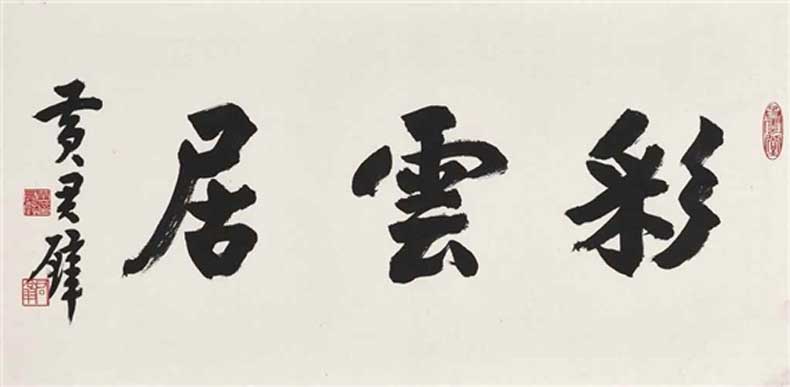 彩雲居
黃君璧